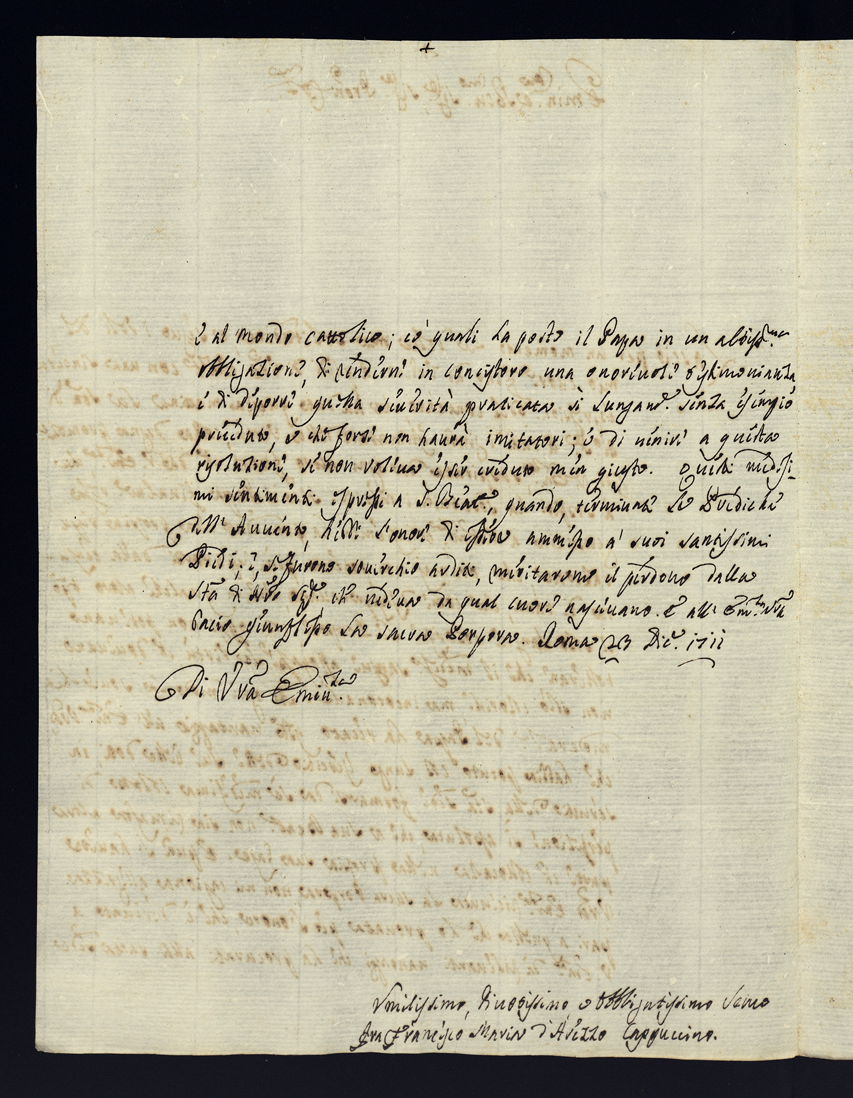 +
e al mondo cattolico; co' quali ha posto il Papa in un altiss.mo
obbligazione, di rendere in concistoro una onorevole testimonianza
e di deporre questa severità praticata sì lungam.te senza esempio
preceduto, e che forse non haurà imitatori; e di venire a questa
risoluzione, se non voleva esser creduto men giusto. Questi medesi-
mi sentimenti espressi a S. Beat.e, quando, terminate le Prediche
dell' Avvento, hebbi l'onore di essere ammesso a' suoi santissimi
Piedi; e, se furono soverchio arditi, meritarono il perdono dalla
S.tà di N.ro Sig.re, che vedeva da qual cuore nascevano. E all' Em.za V.ra
bacio la sacra Porpora. Roma 23 Dic.e 1711
Di V.ra Emin.za
Umilissimo, divotissimo e obbligatissimo Servo
Fra Francesco Maria d'Arezzo Cappuccino.